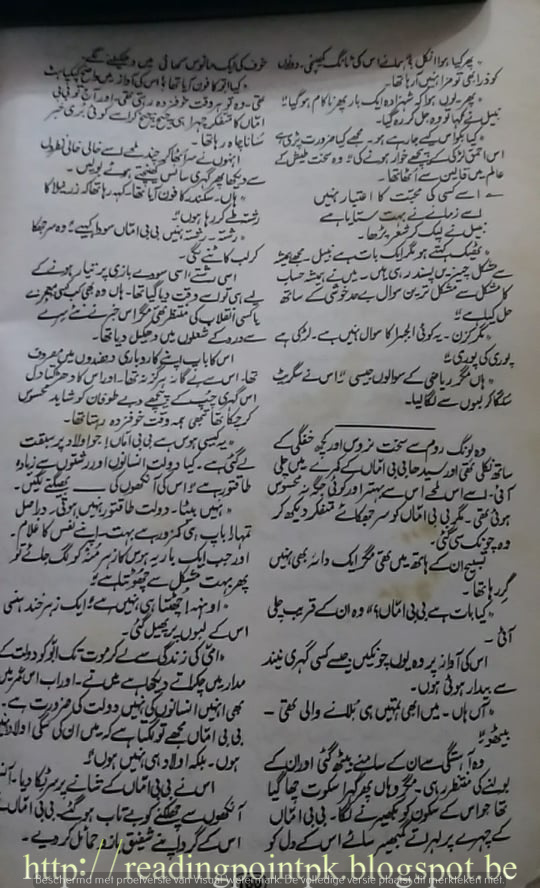 " پھر کیا ہوا انکل؟" ہم سالے اس کی ٹانگ کھینچی۔ دونوں
کو ذرا بھی تو مزا نہیں آ رہا تھا۔
" پھر۔ یوں ہوا کہ شہزادہ ایک بار پھر ناکام ہو گیا"
نبیل نے کہا تو وہ جل کر رہ گیا۔
" کیا بکواس کیے جا رہے ہو۔ مجھے کیا ضرورت پڑی ہے
اس احمق لڑکی کے پیچھے خوار ہونے کی" وہ سخت طیش کے
عالم میں قالین سے اٹھا تھا۔
اسے کسی کی محبت کا اعتبار نہیں
اسے زمانے نے بہت ستایا ہے
نبیل نے لپک کر شعر پڑھا۔
" ٹھیک کہتے ہو مگر ایک بات ہے نبیل۔ مجھے ہمیشہ
سے مشکل چیزیں پسند رہی ہیں۔ میں نے ہمیشہ حساب
کا مشکل سے مشکل ترین سوال بے حد خوشی کے ساتھ
حل کیا ہے"
" مگر کزن۔ یہ کوئی الجبرا کا سوال نہیں ہے۔ لڑکی ہے
پوری کی پوری"
" ہاں مگر ریاضی کے سوالوں جیسی" اس نے سگریٹ
سلگا کر لبوں سے لگا لیا۔
وہ لونگ روم سے سخت نروس اور کچھ خفگی کے
ساتھ نکلی تھی اور سیدھا بی بی اماں کے کمرے میں چلی
آئی۔ اسے اس لمحے اس سے بہتر اور کوئی جگہ نہ محسوس
ہوئی تھی۔ مگر بی بی اماں کو سر جھکائے متفکر دیکھ کر
وہ چونک سی گئی۔
تسبیح ان کے ہاتھ میں تھی مگر ایک دانہ بھی نہیں
گر رہا تھا۔
" کیا بات ہے بی بی اماں؟" وہ ان کے قریب چلی
آئی۔
اس کی آواز پر وہ یوں چونکیں جیسے کسی گہری نیند
سے بیدار ہوئی ہوں۔
" آں ہاں۔ میں ابھی تمہیں ہی بلانے والی تھی۔
بیٹھو"
وہ آہستگی سے ان کے سامنے بیٹھ گئی اور ان کے
بولنے کی منتظر رہی۔ مگر وہاں پھر گہرا سکوت چھا گیا
تھا جو اس کے سکون کو بکھیرنے لگا۔ بی بی اماں
کے چہرے پر لہراتے گمبھیر سائے اس کے دل کو
خوف کی ایک مانوس کھائی میں دھکیلنے لگے۔
" کیا ابو کا فون آیا تھا؟" اس کی آواز میں واضح کپکپاہٹ
تھی۔ وہ تو ہر وقت خوفزدہ رہتی تھی۔ اور آج تو بی بی
اماں کا متفکر چہرا ہی چیخ چیخ کر اسے کوئی بری خبر
سنانا چاہ رہا تھا۔
انہوں نے سر اٹھا کر چند لمحے اسے خالی خالی نظروں
سے دیکھا پھر گہری سانس کھینچتے ہوئے بولیں۔
" ہاں۔ سکندر کا فون آیا تھا۔ کہہ رہا تھا کہ زر نیلا کا
رشتہ طے کر رہا ہوں"
" رشتہ۔ رشتہ نہیں بی بی اماں سودا کیسے" وہ سر جھکا
کر لب کاٹنے لگی۔
اس رشتے اسی سودے بازی پر تیار ہونے کے
لیے ہی تو اسے وقت دیا گیا تھا۔ ہاں وہ بھی کب کسی معجزے
یا کسی انقلاب کی منتظر تھی مگر اس خبر نے نئے سرے
سے درد کے شعلوں میں دھکیل دیا تھا۔
اس کا باپ اپنے کاروباری دھندوں میں مصروف
تھا۔ اس سے بے گانہ ہرگز نہ تھا۔ اور اس کا دھڑکتا دل
اس گہری چپ کے پیچھے دبے طوفان کو شاید محسوس
کر چکا تھا تبھی ہمہ وقت خوفزدہ رہتا تھا۔
" یہ کیسی ہوس ہے بی بی اماں! جو اولاد پر سبقت
لے گئی ہے۔ کیا دولت انسانوں اور رشتوں سے زیادہ
طاقتور ہے" اس کی آنکھوں کی بھیگنے لگیں۔
" نہیں بیٹا۔ دولت طاقتور نہیں ہوتی۔ دراصل
تمہارا باپ ہی کمزور ہے بہت۔ اپنے نفس کا غلام۔
اور جب ایک بار یہ ہوس کا زہر منہ کو لگ جائے تو
پھر بہت مشکل سے چھوٹتا ہے"
" اونہہ! چھٹتا ہی نہیں ہے" ایک زہر خند ہنسی
اس کے لبوں پر پھیل گئی۔
" امی کی زندگی سے لے کر موت تک ابو کو دولت کے
مدار میں چکراتے دیکھا ہے میں نے۔ اور اب اس عمر میں
بھی انہیں انسانوں کی نہیں دولت کی ضرورت ہے۔
بی بی اماں مجھے تو لگتا ہے کہ میں ان کی سگی اولاد نہیں
ہوں۔ بلکہ اولاد ہی نہیں ہوں"
اس نے بی بی اماں کے شانے پر سر ٹکا دیا۔
آنکھوں سے چھلکنے کو بے تاب ہو گئے۔ بی بی اماں نے
اس کے گرد اپنے شفیق بازو حمائل کر دیے۔
http://readingpointpk.blogspot.be
Beschermd met proefversie van Visual Watermark. De volledige versie plaatst dit merkteken niet.